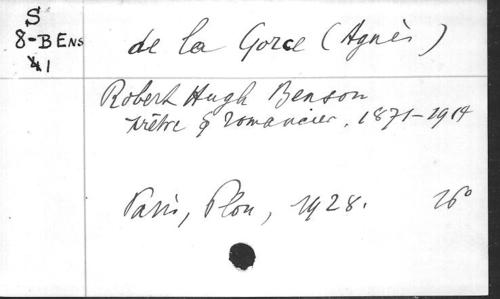 S
8-BENS
41
de la Gorce (Agnès)
Robert Hugh Benson
prêtre & romancier, 1871-1914
Paris, Plon, 1928. 16°